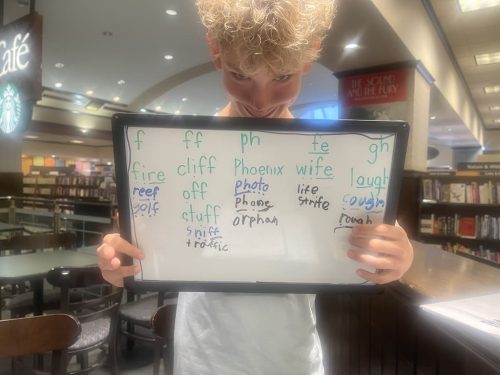 Café
THE SOUND
AND THE FURY
f ff ph fe gh
fire cliff Phoenix wife laugh
reef off photo life cough
golf stuff phone strife rough
sniff orphan
traffic